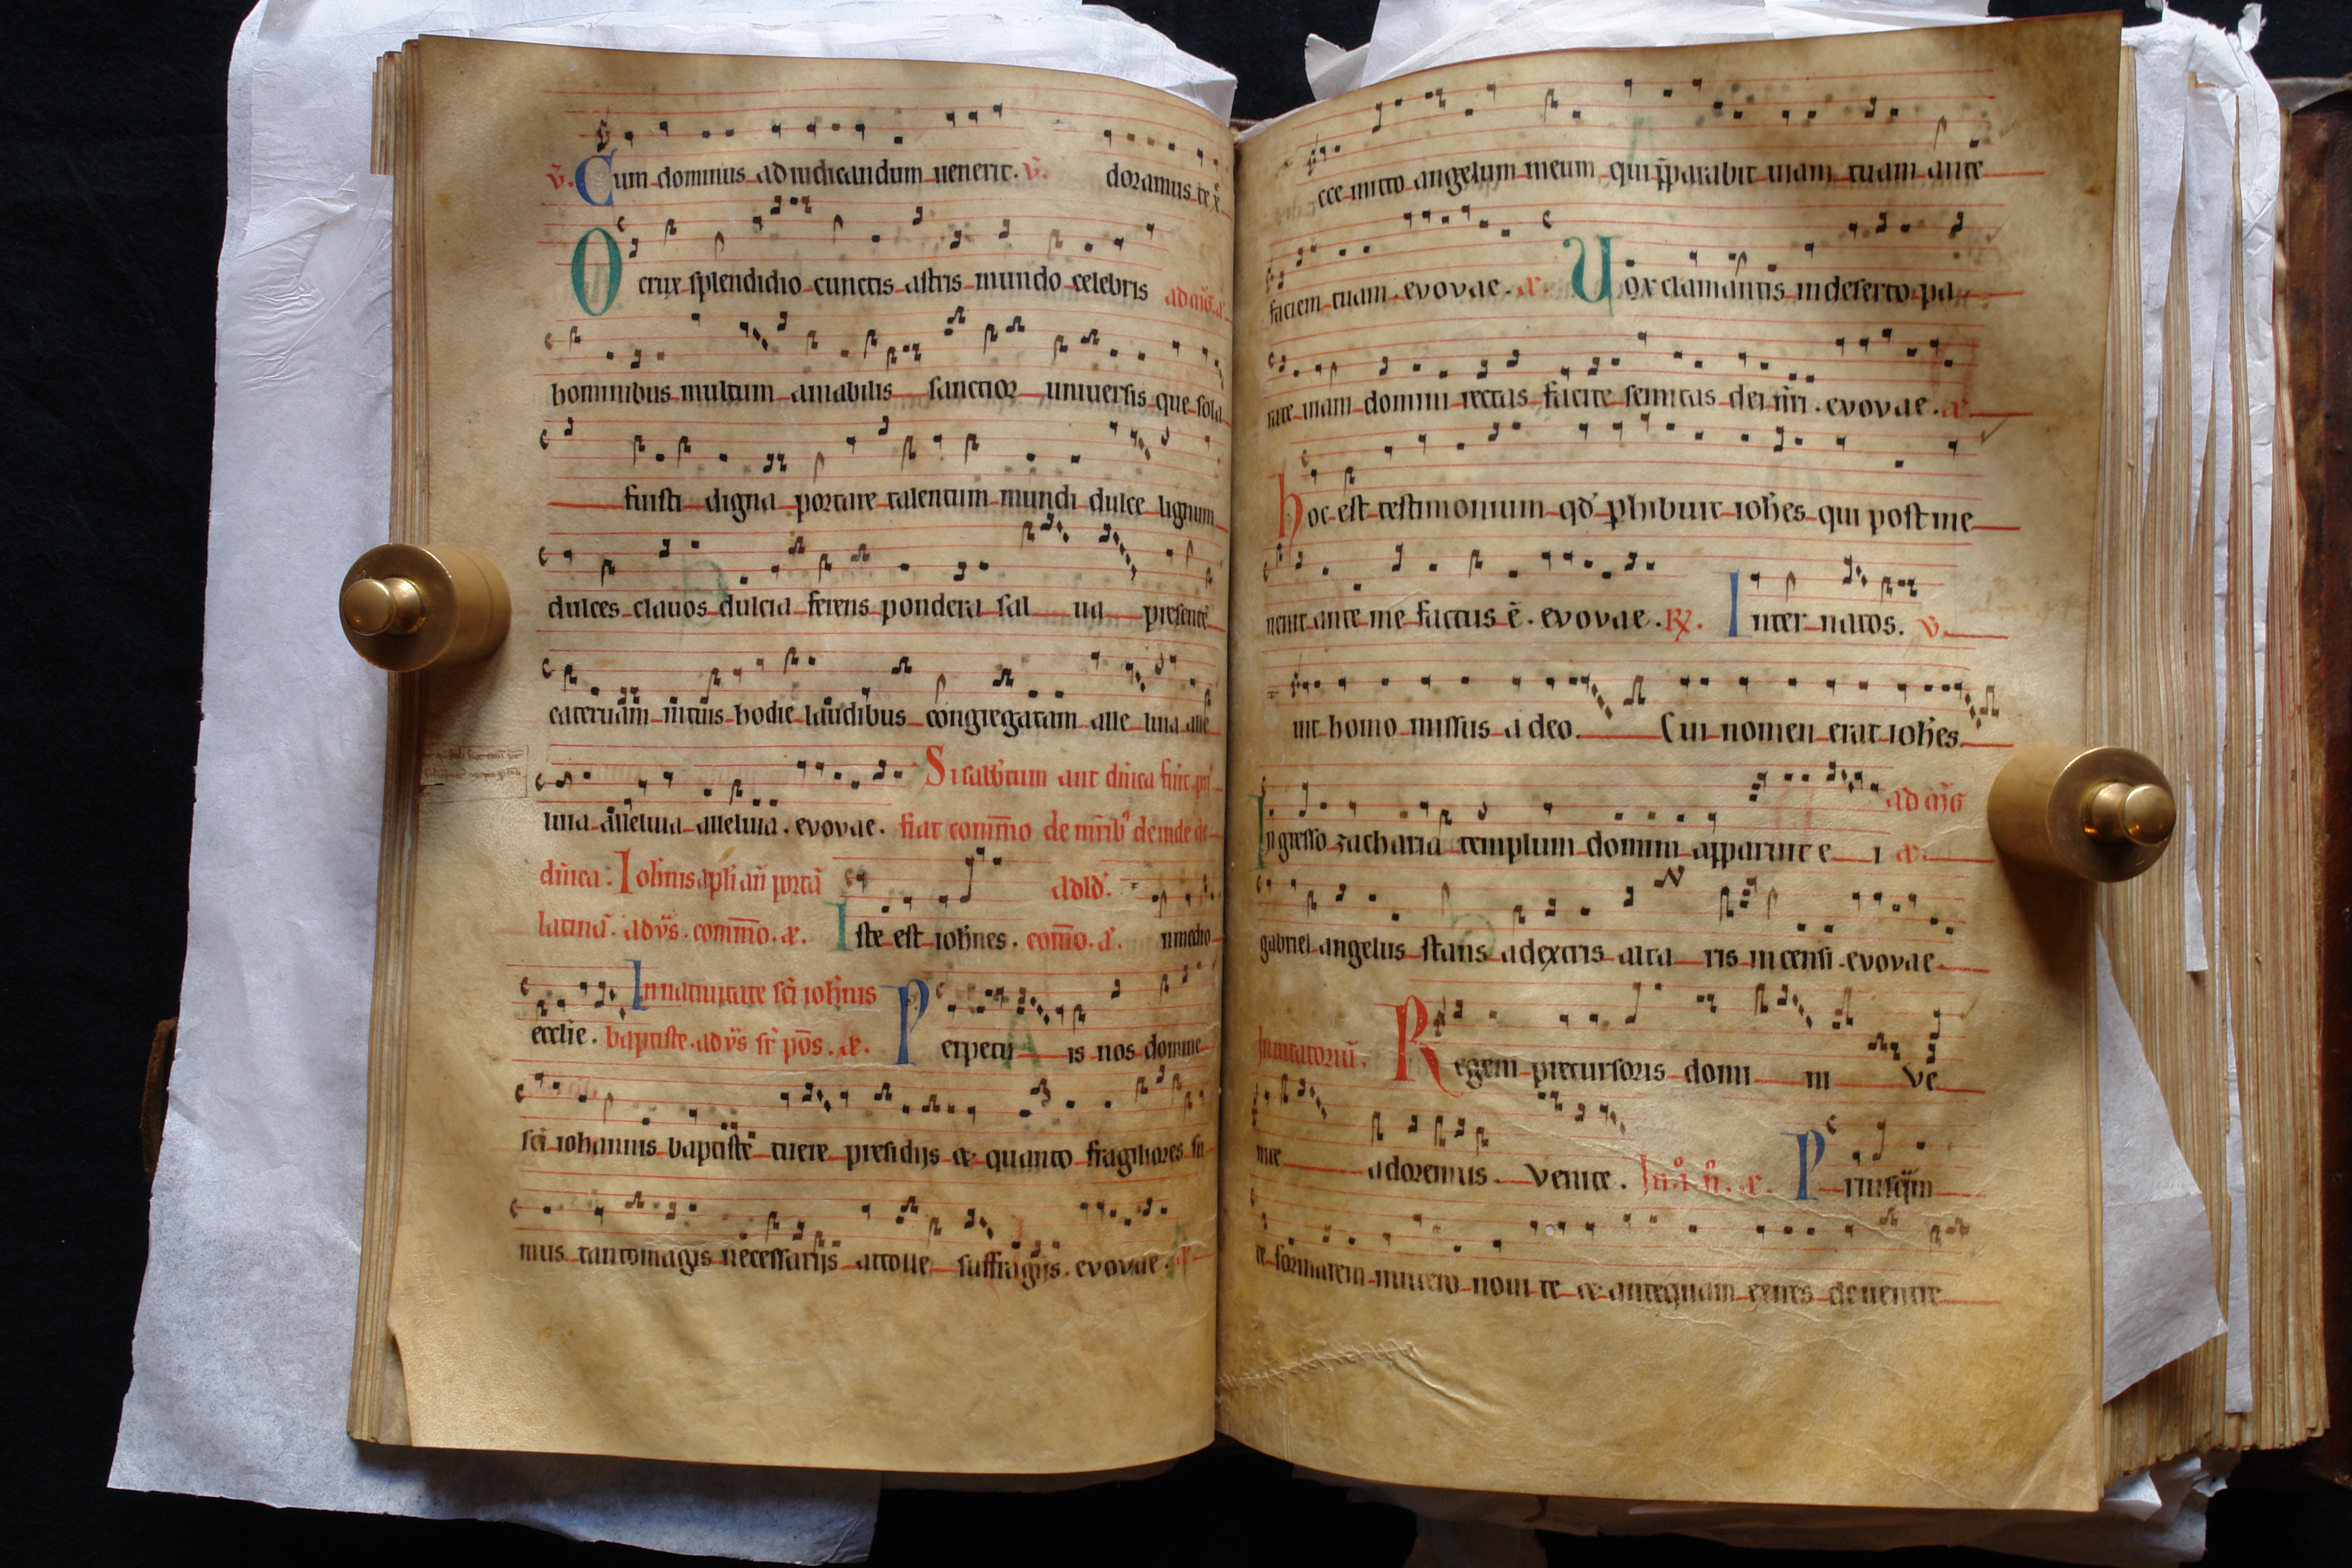 v̄. Cum dominus ad iudicandum uenerit. v̄. doramus te x̄
O crux splendidio cunctis astris mundo celebris
hominibus multum amabilis sanctior uniuersis que sola
fuisti digna portare talentum mundi dulce lignum
dulces clauos dulcia ferens pondera sal ua presentē
cateruam hodie laudibus congregatam alle luia alle
luia alleluia alleluia. evovae. Si sabbtum aut dn̄ica fuit
fiat com̄mo de deinde de
dn̄ica: Ioh̄nis apl̄i an̄ portā ad ld'.
latinā. ad vs̄. com̄mo. æ. Iste est ioh̄nes. com̄o. a. n medio
ecclie. In natiuitate sc̄i ioh̄nis
baptiste. ad vs̄ sr̄ pōs. æ. Perpetu is nos domine
sc̄i iohannis baptiste tuere presidijs & quanto fragiliores su
mus tantomagis necessarijs attolle suffragijs. evovae.
cce mitto angelum meum qui p̄parabit uiam tuam ante
faciem tuam. evovae. a. Uox clamantis in deserto pa
rate uiam domini rectas facite semitas dei nr̄i. evovae. a.
hoc est testimonium qd̄ phibuit ioh̄es qui post me
uenit ante me factus ē. evovae. R. Inter natos. v.
uit homo missus a deo. Cui nomen erat ioh̄es.
ad mḡ
Ingresso zacharia templum domini apparuit e i a.
gabriel angelus stans a dextris alta ris incensi. evovae
Inuitatoriū. Regem precursoris domi ni Ve
nite adoremus. Venite. In .i. n̄. æ. Priusq̄m
te formarem in utero noui te & antequam exires de uentre